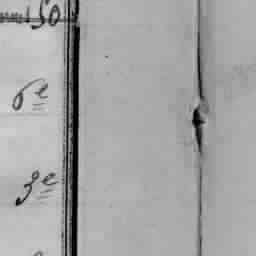 50
6e
3e